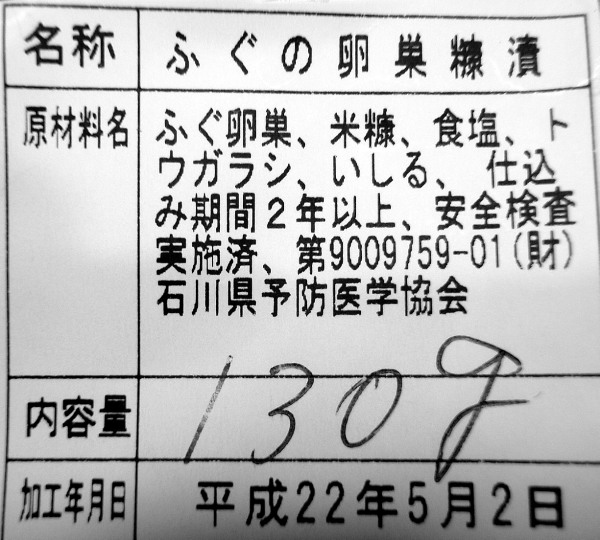 名称 ふぐの卵巣糠漬
原材料名 ふぐ卵巣、米糠、食塩、ト
ウガラシ、いしる、仕込
み期間2年以上、安全検査
実施済、第9009759-01(財)
石川県予防医学協会
内容量 130g
加工年月日 平成22年5月2日